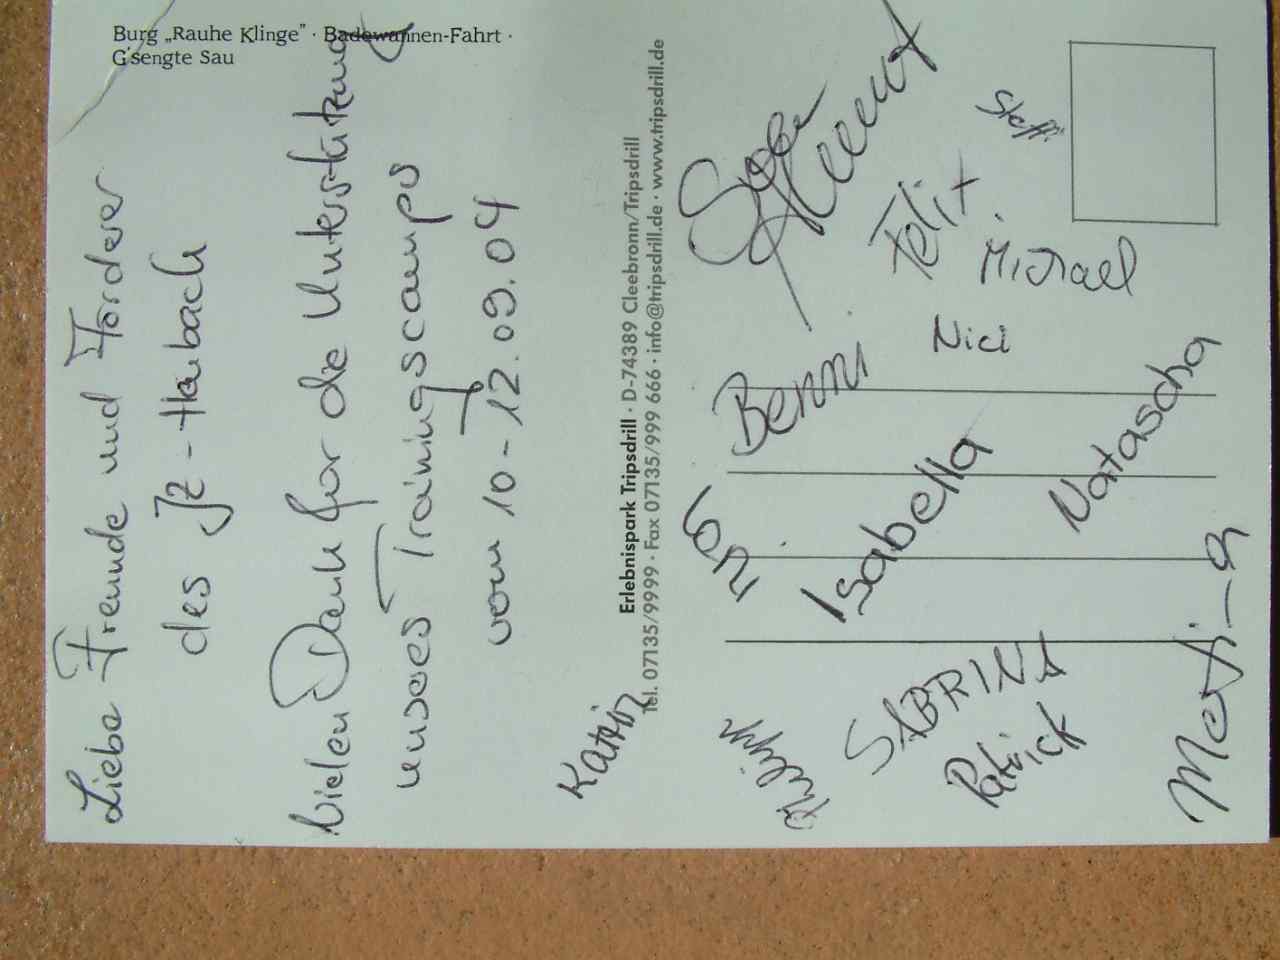 Burg „Rauhe Klinge" · Badewannen-Fahrt ·
G'sengte Sau
Liebe Freunde und Förderer
des JZ-Haubach
Vielen Dank für die Unterstützung
unseres Trainingscamps
vom 10-12.09.04
Katrin
Erlebnispark Tripsdrill · D-74389 Cleebronn/Tripsdrill
Tel. 07135/9999 · Fax 07135/999 666 · info@tripsdrill.de · www.tripsdrill.de
Steffi
Felix
Michael
Nici
Benni
Isabella
Natascha
Philipp
SABRINA
Patrick